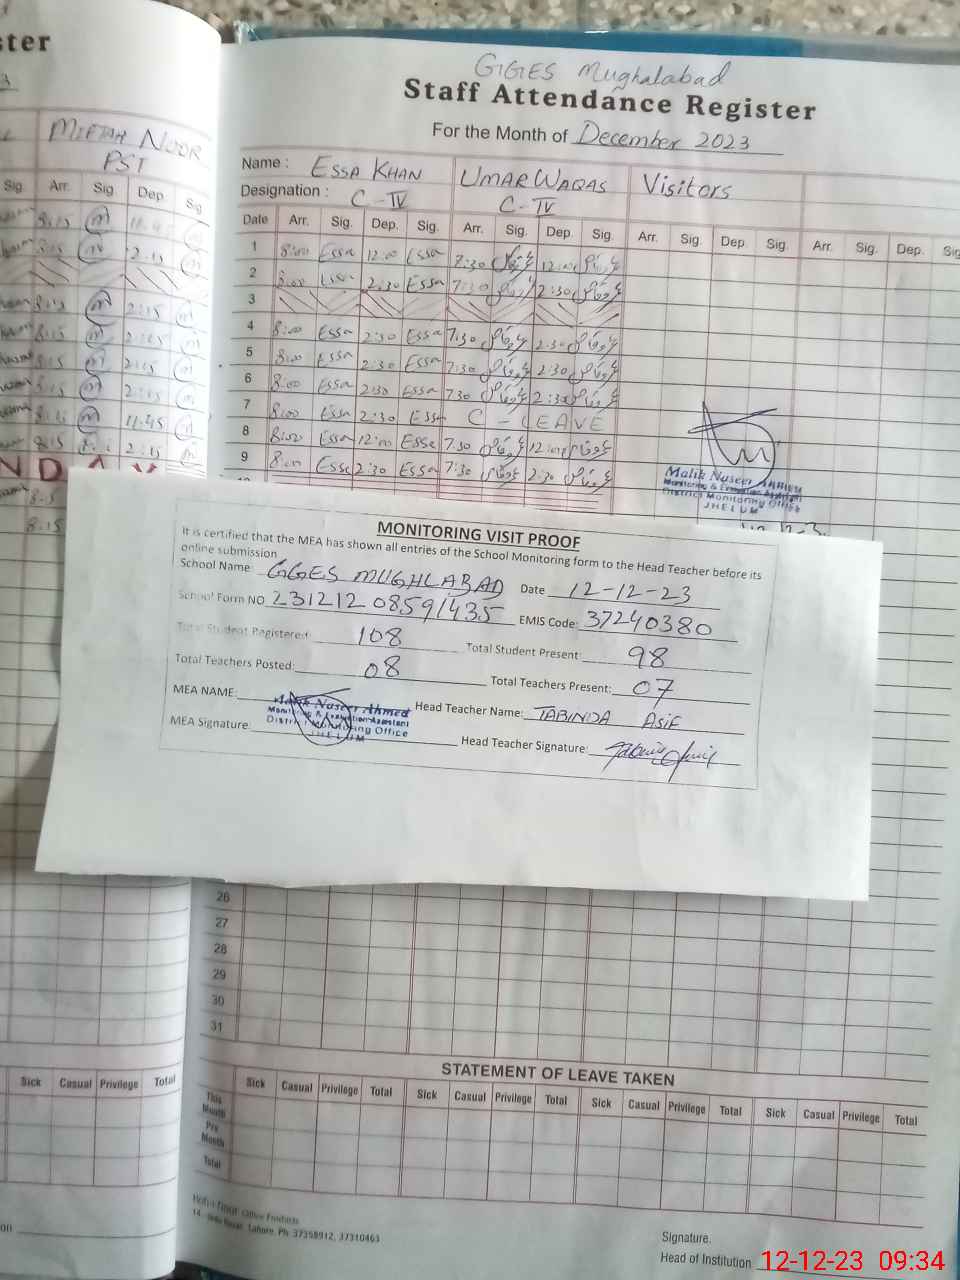 ster
3
MIFTAH NOOR
PST
Sig. Arr. Sig Dep. Sig.
8:15 11.45
8:15 2:15
8:15 2:15
8:15 2:15
8:15 2:15
8:15 2:15
11.45
8:15 2:15
NDAY
8:15
GGES Mughalabad
Staff Attendance Register
For the Month of December 2023
Name : ESSA KHAN UMAR WAQAS Visitors
Designation : C-IV C-IV
Date Arr. Sig. Dep. Sig. Arr. Sig. Dep. Sig. Arr. Sig. Dep. Sig. Arr. Sig. Dep. Sig
1 8:00 Essa 12:00 Essa 7:30 12:00
2 8:00 Essa 2:30 Essa 7:30 2:30
3
4 8:00 Essa 2:30 Essa 7:30 2:30
5 8:00 Essa 2:30 Essa 7:30 2:30
6 8:00 Essa 2:30 Essa 7:30 2:30
7 8:00 Essa 2:30 Essa C - LEAVE
8 8:00 Essa 12:00 Essa 7:30 12:00
9 8:00 Essa 2:30 Essa 7:30 2:30
Malik Naseer Ahmed
Monitoring & Evaluation Assistant
District Monitoring Office
JHELUM
MONITORING VISIT PROOF
It is certified that the MEA has shown all entries of the School Monitoring form to the Head Teacher before its
online submission
School Name: GGES MUGHLABAD Date 12-12-23
School Form NO 231212 08591435 EMIS Code: 37240380
Total Student Registered: 108 Total Student Present: 98
Total Teachers Posted: 08 Total Teachers Present: 07
MEA NAME: Malik Naseer Ahmed Head Teacher Name: TABINDA ASIF
Monitoring & Evaluation Assistant
District Monitoring Office
JHELUM
MEA Signature: Head Teacher Signature:
26
27
28
29
30
31
STATEMENT OF LEAVE TAKEN
Sick Casual Privilege Total Sick Casual Privilege Total Sick Casual Privilege Total Sick Casual Privilege Total
Sick Casual Privilege Total
This Month
Pre Month
Total
Office Products
Lahore. Ph: 37358912, 37310463
Signature.
Head of Institution
12-12-23 09:34